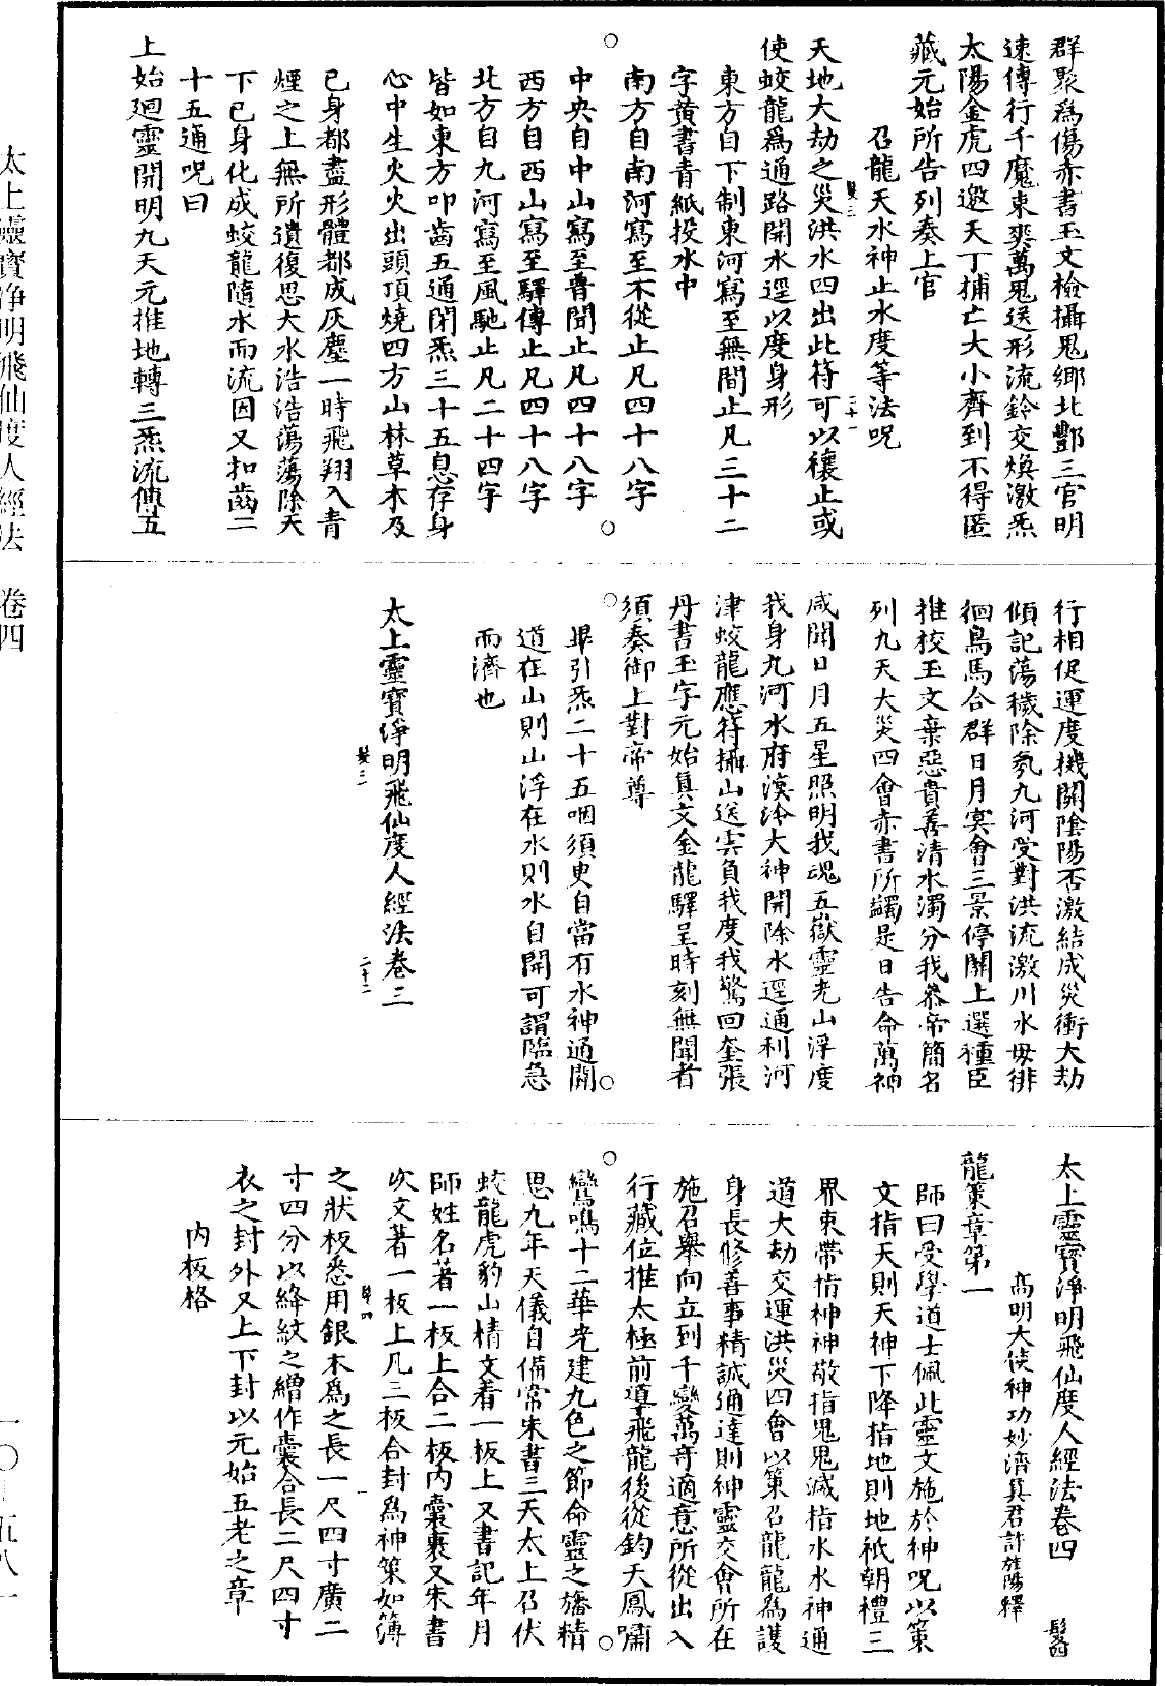 群聚為傷赤書玉文檢攝鬼鄉北酆三官明
速傳行千魔束爽萬鬼送形流鈴交煥激炁
太陽金虎四邀天丁捕亡大小齊到不得匿
藏元始所告列奏上官
召龍天水神止水度等法呪
天地大劫之災洪水四出此符可以禳止或
使蛟龍為通路開水逕以度身形
東方自下制東河寫至無間止凡三十二
字黄書青紙投水中
南方自南河寫至不從止凡四十八字
中央自中山寫至普聞止凡四十八字
西方自西山寫至驛傳止凡四十八字
北方自九河寫至風馳止凡二十四字
皆如東方叩齒五通閉炁三十五息存身
心中生火火出頭頂燒四方山林草木及
已身都盡形體都成灰塵一時飛翔入青
煙之上無所遺復思大水浩浩蕩蕩除天
下已身化成蛟龍隨水而流因又扣齒二
十五通呪曰
上始廻靈開明九天元推地轉三炁流傳五
行相促運度機關陰陽否激結成災衝大劫
傾記蕩穢除氛九河受對洪流激川水毋徘
徊鳥馬合群日月㝠會三景停關上選種臣
推校玉文棄惡貴善清水濁分我叅帝簡名
列九天大災四會赤書所蠲是日告命萬神
咸開日月五星照明我魂五嶽靈光山浮度
我身九河水府溟泠大神開除水逕通利河
津蛟龍應符攝山送雲負我度我驚回奎張
丹書玉字元始真文金龍驛呈時刻無聞者
須奏御上對帝尊
畢引炁二十五咽須臾自當有水神通開
道在山則山浮在水則水自開可謂臨急
而濟也
太上靈寶淨明飛仙度人經法卷三
太上靈寶淨明飛仙度人經法卷四
髮四
高明大使神功妙濟真君許旌陽釋
龍策章第一
師曰受學道士佩此靈文施於神呪以策
文指天則天神下降指地則地祇朝禮三
界束帶指神神敬指鬼鬼滅指水水神通
道大劫交運洪災四會以策召龍龍為護
身長修善事精誠通達則神靈交會所在
施召舉向立到千變萬奇適意所從出入
行藏位推太極前導飛龍後從鈞天鳳嘯
鸞鳴十二華光建九色之節命靈之旛精
思九年天儀自備常朱書三天太上召伏
蛟龍虎豹山精文着一板上又書記年月
師姓名著一板上合二板内囊裹又朱書
此文著一板上凡三板合封為神策如簿
之狀板悉用銀木為之長一尺四寸廣二
寸四分以絳紋之繒作囊合長二尺四寸
衣之封外又上下封以元始五老之章
内板格
太上靈寶淨明飛仙度人經法　卷四